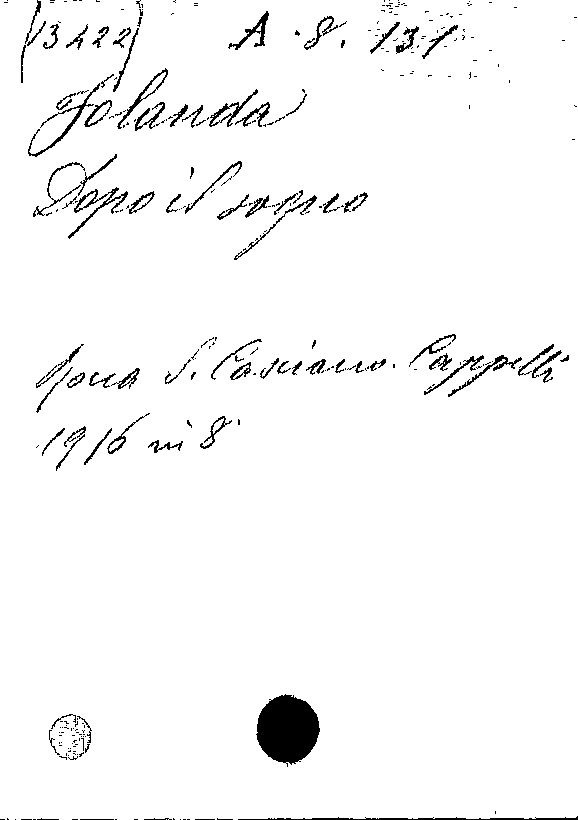 (13222) A. 8. 131
Jolanda
Dopo il sogno
Rocca S. Casciano. Cappelli
1916 in 8°